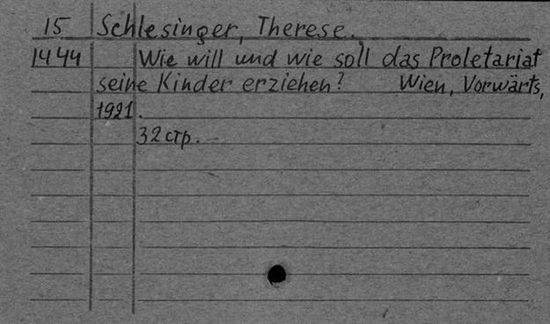 15 Schlesinger, Therese.
1444 Wie will und wie soll das Proletariat
seine Kinder erziehen? Wien, Vorwärts,
1921.
32 стр.